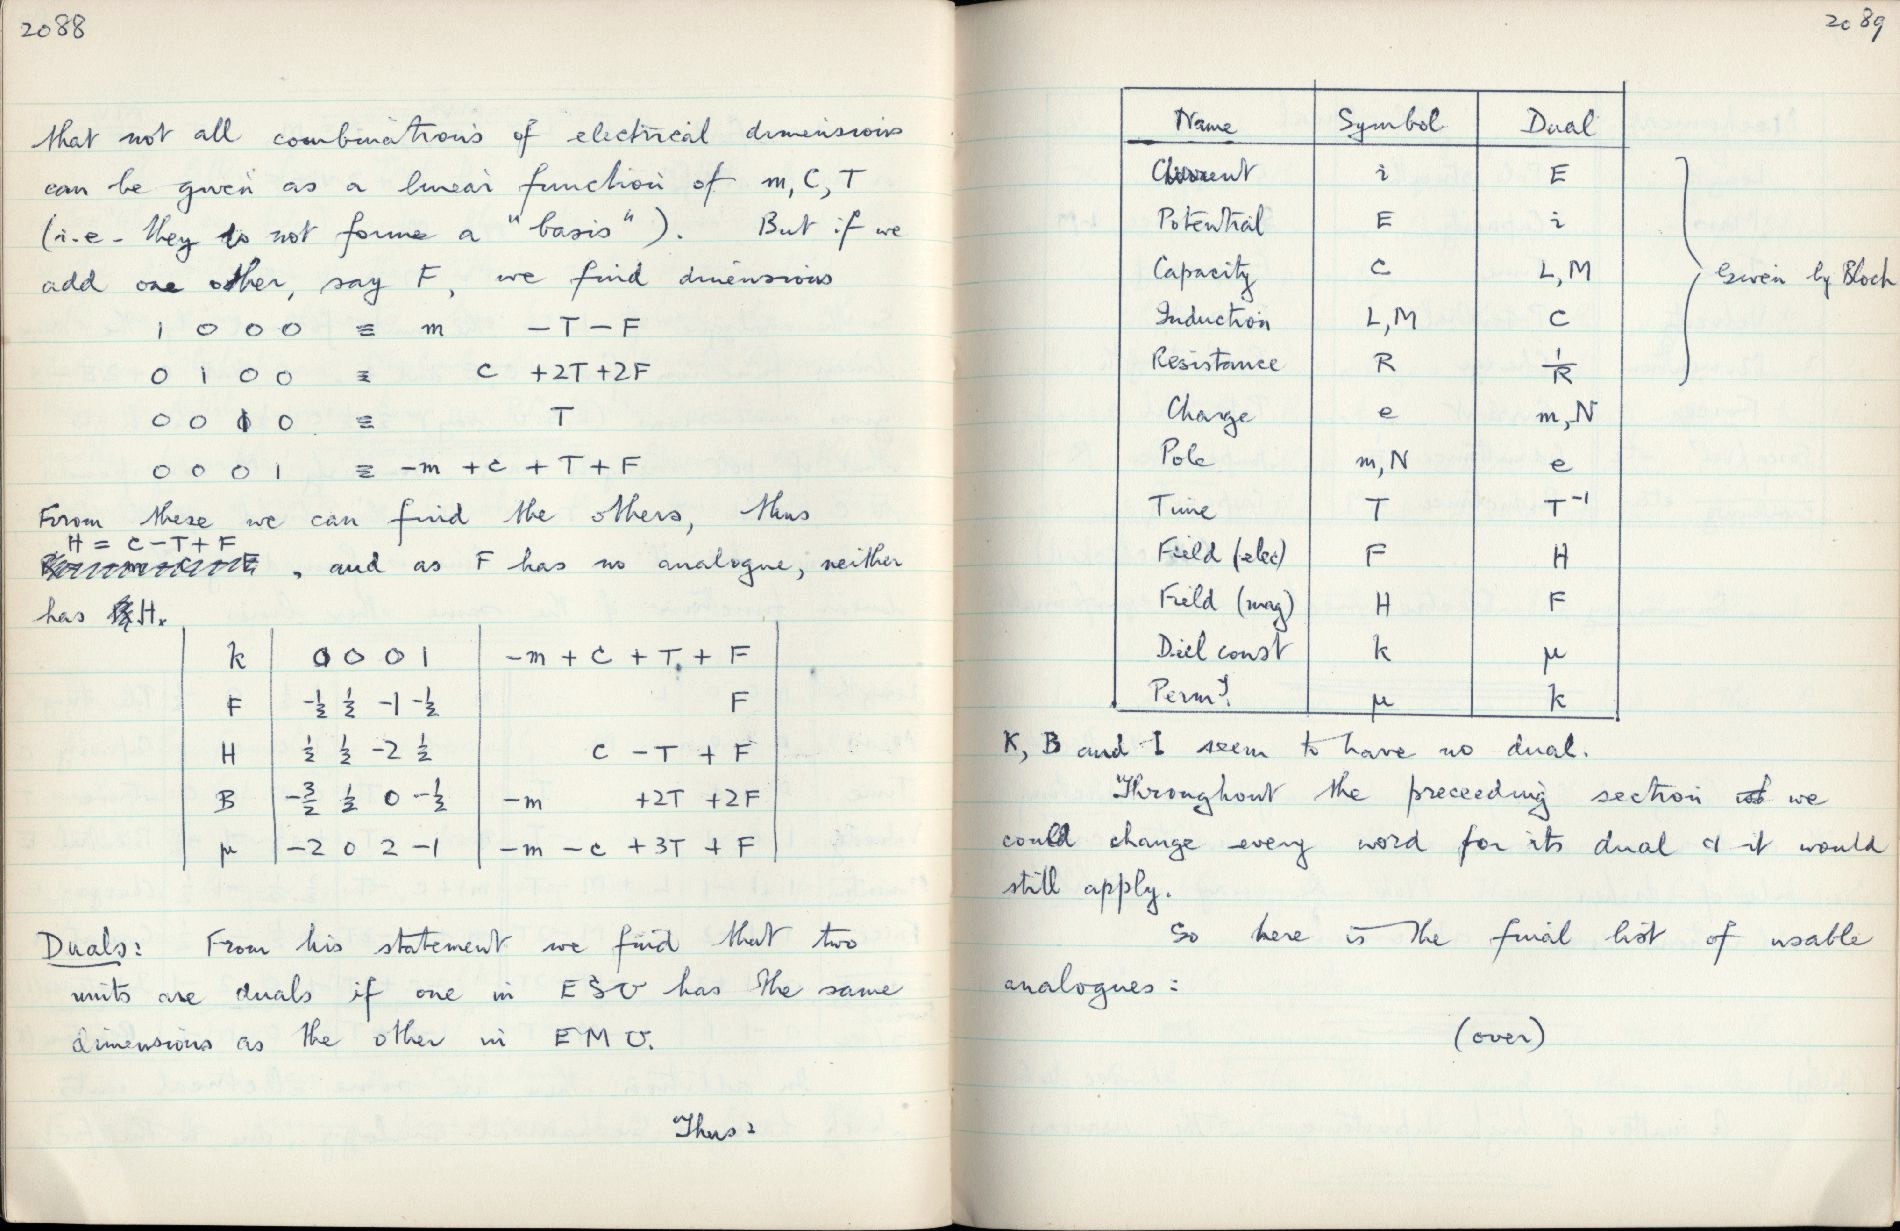 2088
that not all combinations of electrical dimensions
can be given as a linear function of m, C, T
(i.e. they do not forme a "basis"). But if we
add one other, say F, we find dimensions
1 0 0 0 ≡ m - T - F
0 1 0 0 ≡ C + 2T + 2F
0 0 1 0 ≡ T
0 0 0 1 ≡ -m + C + T + F
From these we can find the others, thus
H = C - T + F
, and as F has no analogue, neither
has H.
k 0 0 0 1 -m + C + T + F
F -½ ½ -1 -½ F
H ½ ½ -2 ½ C - T + F
B -3/2 ½ 0 -½ -m +2T +2F
μ -2 0 2 -1 -m - C + 3T + F
Duals: From his statement we find that two
units are duals if one in ESU has the same
dimensions as the other in EMU.
Thus:
2089
Name Symbol Dual
Current i E
Potential E i
Capacity C L, M
Induction L, M C
Resistance R 1/R
Given by Bloch
Charge e m, N
Pole m, N e
Time T T⁻¹
Field (elec) F H
Field (mag) H F
Diel const k μ
Permy. μ k
K, B and I seem to have no dual.
Throughout the preceeding section we
could change every word for its dual & it would
still apply.
So here is the final list of usable
analogues:
(over)